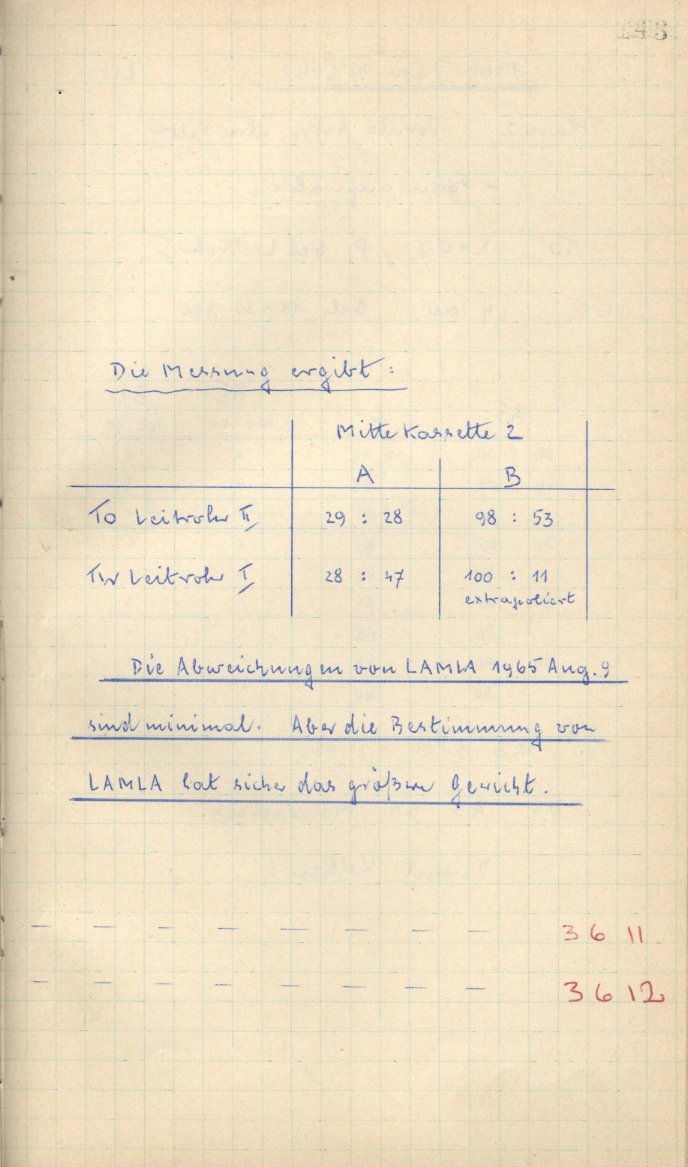 Die Messung ergibt:
Mitte Kassette 2
A B
To Leitrohr II 29 : 28 98 : 53
Tw Leitrohr I 28 : 47 100 : 11
extrapoliert
Die Abweichungen von LAMLA 1965 Aug. 9
sind minimal. Aber die Bestimmung von
LAMLA hat sicher das größere Gewicht.
– – – – – – – – 3611
– – – – – – – – 3612